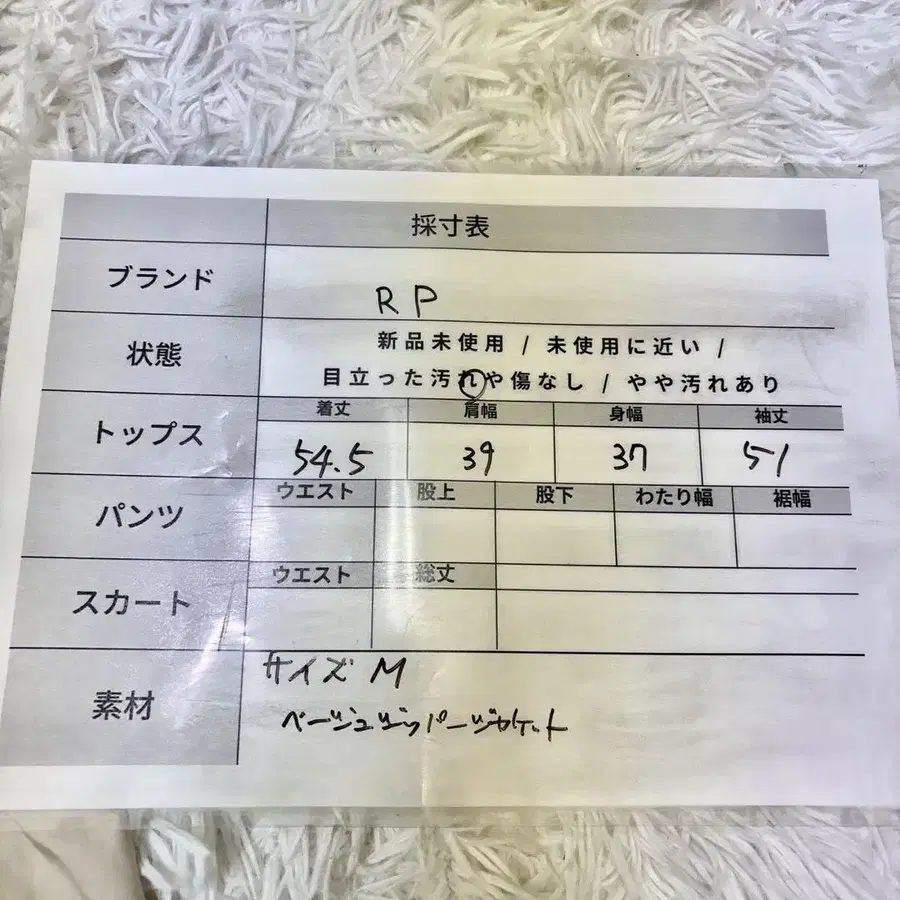 採寸表
ブランド RP
状態 新品未使用 / 未使用に近い /
目立った汚れや傷なし / やや汚れあり
トップス 着丈 肩幅 身幅 袖丈
54.5 39 37 51
パンツ ウエスト 股上 股下 わたり幅 裾幅
スカート ウエスト 総丈
素材 サイズ M
ベージュジッパージャケット